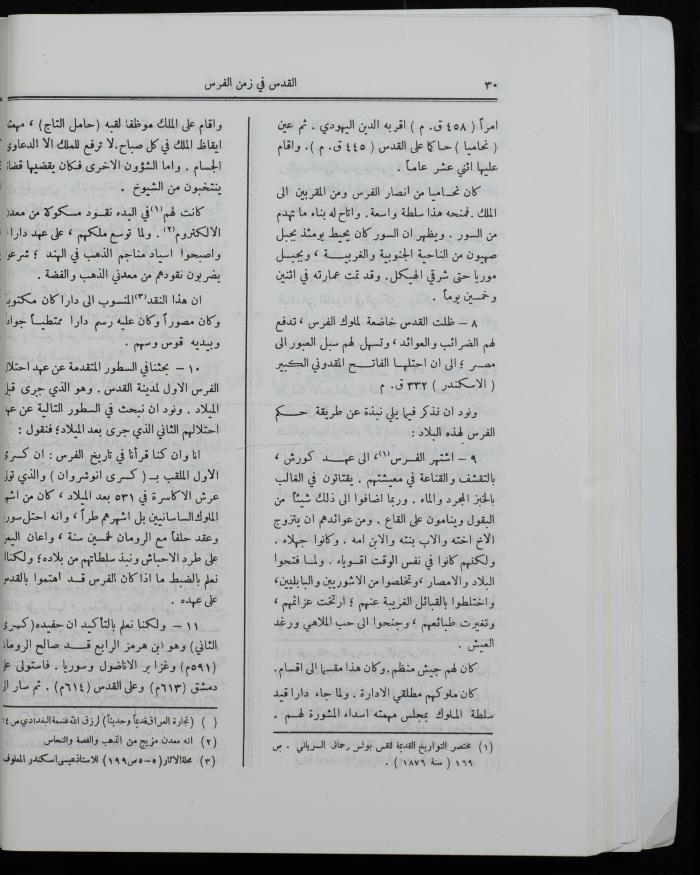 ٣٠
القدس في زمن الفرس
امراً ( ٤٥٨ ق. م ) اقر به الدين اليهودي . ثم عين
( نحاميا ) حاكما على القدس ( ٤٤٥ ق. م ). واقام
عليها اثني عشر عاماً .
كان نحاميا من انصار الفرس ومن المقربين الى
الملك . فمنحه هذا سلطة واسعة . واتاح له بناء ما تهدم
من السور . ويظهر ان السور كان يحيط يومئذ بجبل
صهيون من الناحية الجنوبية والغربية ، وبجبل
موريا حتى شرقي الهيكل . وقد تمت عمارته في اثنين
وخمسين يوماً .
٨ – ظلت القدس خاضعة لملوك الفرس ، تدفع
لهم الضرائب والعوائد ، وتسهل لهم سبل العبور الى
مصر ؛ الى ان احتلها الفاتح المقدوني الكبير
( الاسكندر ) ٣٣٢ ق. م
ونود ان نذكر فيما يلي نبذة عن طريقة حكم
الفرس لهذه البلاد :
٩ – اشتهر الفرس(١)، الى عهد كورش ،
بالتقشف والقناعة في معيشتهم . يقتاتون في الغالب
بالخبز المجرد والماء . وربما اضافوا الى ذلك شيئاً من
البقول وينامون على القاع . ومن عوائدهم ان يتزوج
الاخ اخته والاب بنته والابن امه . وكانوا جهلاء .
ولكنهم كانوا في نفس الوقت اقوياء . ولما فتحوا
البلاد والامصار ، وتخلصوا من الاشوريين والبابليين،
واختلطوا بالقبائل الغريبة عنهم ؛ ارتخت عزائمهم ،
وتغيرت طبائعهم ، وجنحوا الى حب الملاهي ورغد
العيش .
كان لهم جيش منظم. وكان هذا مقسما الى اقسام.
كان ملوكهم مطلقي الادارة . ولما جاء دارا قيد
سلطة الملوك بمجلس مهمته اسداء المشورة لهم .
(١) مختصر التواريخ القديمة للقس بولس رحماني السرياني . ص
١٦٩ ( سنة ١٨٧٦ ) .
واقام على الملك موظفا لقبه (حامل التاج) ، مهمته
ايقاظ الملك في كل صباح. لا ترفع للملك الا الدعاوي
الجسام . واما الشؤون الاخرى فكان يقضيها قضاة
ينتخبون من الشيوخ .
كانت لهم(١) في البدء نقود مسكوكة من معدن
الالكتروم(٢) . ولما توسع ملكهم ، على عهد دارا
واصبحوا اسياد مناجم الذهب في الهند ؛ شرعوا
يضربون نقودهم من معدني الذهب والفضة .
ان هذا النقد(٣) المنسوب الى دارا كان مكتوبا
وكان مصوراً وكان عليه رسم دارا ممتطياً جواد
وبيديه قوس وسهم .
١٠ – بحثنا في السطور المتقدمة عن عهد احتلال
الفرس الاول لمدينة القدس . وهو الذي جرى قبل
الميلاد . ونود ان نبحث في السطور التالية عن عهد
احتلالهم الثاني الذي جرى بعد الميلاد ؛ فنقول :
انا وان كنا قرأنا في تاريخ الفرس : ان كسرى
الاول الملقب بـ ( كسرى انوشروان ) والذي تولى
عرش الاكاسرة في ٥٣١ بعد الميلاد ، كان من اشهر
الملوك الساسانيين بل اشهرهم طراً ، وانه احتل سوريا
وعقد حلفاً مع الرومان لخمسين سنة ، واعان اليمن
على طرد الاحباش ونبذ سلطاتهم من بلاده ؛ ولكنا لا
نعلم بالضبط ما اذا كان الفرس قد اهتموا بالقدس
على عهده .
١١ – ولكننا نعلم بالتأكيد ان حفيده (كسرى
الثاني) وهو ابن هرمز الرابع قد صالح الرومان
(٥٩١م) وغزا بر الاناضول وسوريا . فاستولى على
دمشق (٦١٣م) وعلى القدس (٦١٤م) . ثم سار الى
( ) (تجارة العراق قديماً وحديثاً) لرزق الله غنيمة البغدادي ص ١٤
(٢) انه معدن مزيج من الذهب والفضة والنحاس
(٣) مجلة الاثار (٥–٥ ص ١٩٩) للاستاذ عيسى اسكندر المعلوف